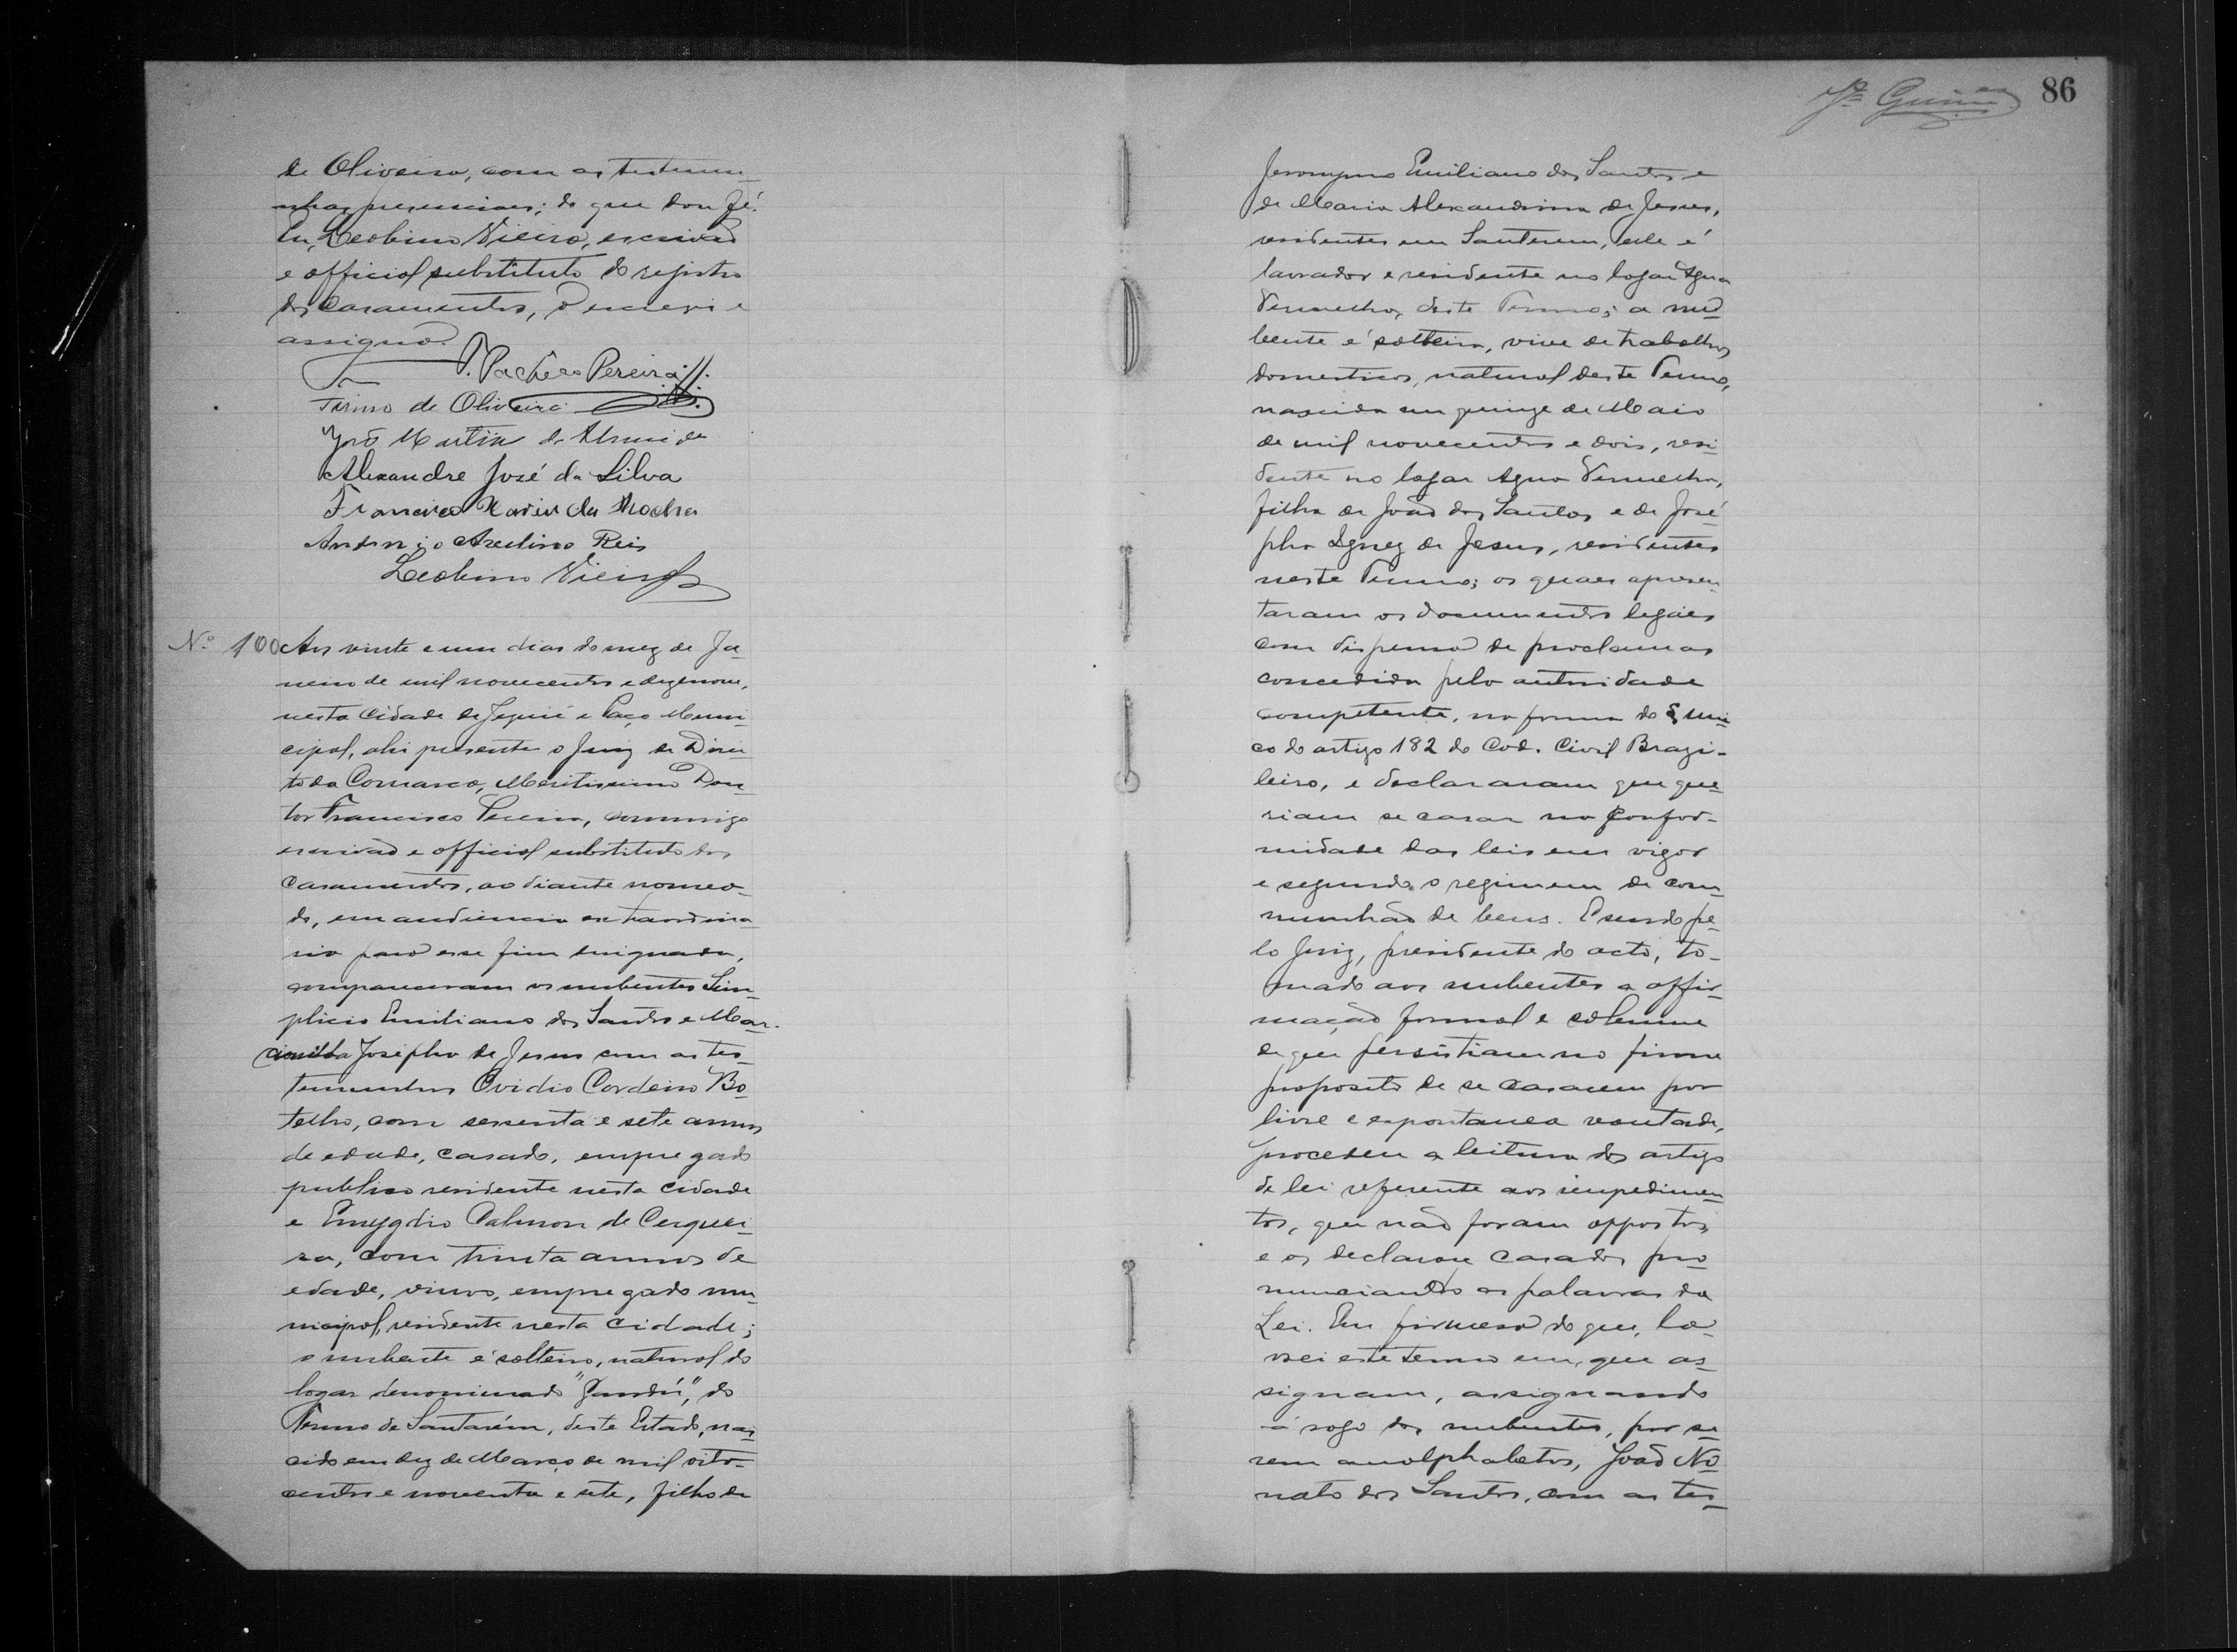 de Oliveira, com as testemu-
nhas presenciaes; do que dou fé.
Eu, Leobino Vieira, escrivão
e official substituto do registro
dos casamentos, o escrevi e
assigno.
P. Pacheco Pereira
Firmo de Oliveira
João Martin de Almeida
Alexandre José da Silva
Francisco Xavier da Rocha
Antonio Avelino Reis
Leobino Vieira
Nº 100 Aos vinte e um dias do mez de Ja-
neiro de mil novecentos e dezenove,
nesta cidade de Jequié e Paço Muni-
cipal, ahi presente o Juiz de Direi-
to da Comarca, Meritissimo Dou-
tor Francisco Pereira, commigo
escrivão e official substituto dos
casamentos, ao diante nomeo-
do, em audiencia extraordina-
ria para esse fim designada,
compareceram os nubentes Sim-
plicio Emiliano dos Santos e Mar-
cionilla Josepha de Jesus com as tes-
temunhas Ovidio Cordeiro Bo-
telho, com sessenta e sete annos
de edade, casado, empregado
publico residente nesta cidade
e Emygdio Calmon de Cerquei-
ra, com trinta annos de
edade, viuvo, empregado mu-
nicipal, residente nesta cidade;
o nubente é solteiro, natural do
logar denominado "Jandú", do
Termo de Santarém, deste Estado, nas-
cido em dez de Março de mil oito-
centos e noventa e sete, filho de
86
Jeronymo Emiliano dos Santos e
de Maria Alexandrina de Jesus,
residentes em Santarem, elle é
lavrador e residente no logar Agua
Vermelha, deste Termo; a nu-
bente é solteira, vive de trabalhos
domesticos, natural deste Termo,
nascida em quinze de Maio
de mil novecentos e dois, resi-
dente no logar Agua Vermelha,
filha de João dos Santos e de José-
pha Ignez de Jesus, residentes
neste Termo; os quaes apresen-
taram os documentos legaes
com dispensa de proclamas
concedida pela autoridade
competente, na forma do § uni-
co do artigo 182 do Cod. Civil Brazi-
leiro, e declararam que que-
riam se casar na confor-
midade das leis em vigor
e segundo o regimem de com-
munhão de bens. E sendo pe-
lo Juiz, presidente do acto, to-
mado aos nubentes a affir-
mação formal e solemne
de que persistiam no firme
proposito de se casarem por
livre e espontanea vontade,
procedeu a leitura dos artigo
da lei referente aos impedimen-
tos, que não foram oppostos,
e os declarou casados pro-
nunciando as palavras da
Lei. Em firmesa do que, la-
vrei este termo em que as-
signam, assignando
á rogo dos nubentes, por se-
rem analphabetos, João No-
nato dos Santos, com as tes-